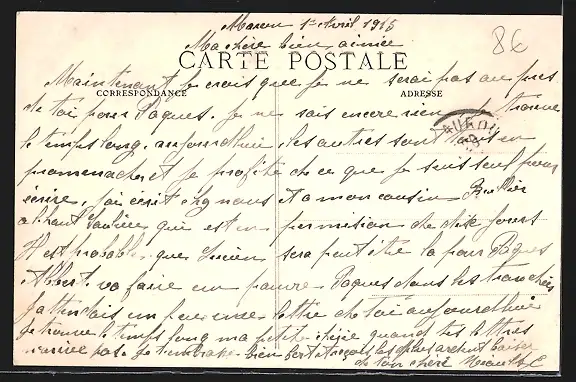 1er Avril 1915
Ma chère bien aimée
8€
CARTE POSTALE
Maintenant je crois que je ne serai pas au près
CORRESPONDANCE
ADRESSE
de toi pour Pâques. Je ne sais encore rien je trouve
le temps long. aujourdhui les autres sont en
promenade et je profite de ce que je suis seul pour
écrire, j'ai écrit chez nous et a mon cousin
qui est en permision de dix jours
Il est probable que Lucien sera peut être la pour Pâques
Albert va faire un pauvre Pâques dans les tranchées
J'attendais un peu une lettre de toi aujourdhui
je trouve le temps long ma petite chérie quand tes lettres
pas. Je t'embrasse bien fort et reçois les plus ardent baiser
de ton chéri